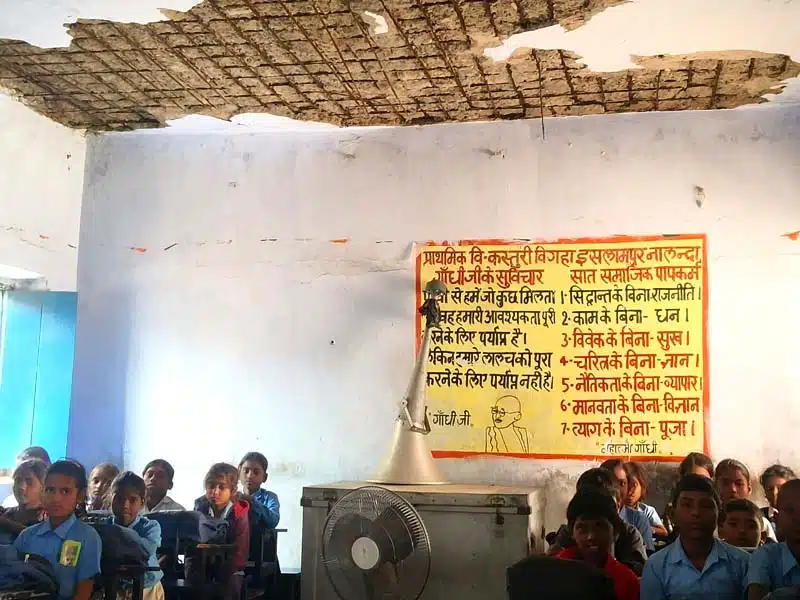 प्राथमिक वि॰ कस्तुरी विगहा इसलामपुर नालन्दा
गाँधीजी के सुविचार
से हमें जो कुछ मिलता
वह हमारी आवश्यकता पूरी
के लिए पर्याप्त है।
हमारे लालच को पुरा
करने के लिए पर्याप्त नही है।
गाँधीजी
सात समाजिक पापकर्म
1- सिद्धान्त के बिना राजनीति।
2- काम के बिना- धन।
3- विवेक के बिना- सुख।
4- चरित्र के बिना- ज्ञान।
5- नैतिकता के बिना- व्यापार।
6- मानवता के बिना- विज्ञान
7- त्याग के बिना- पुजा।
महात्मा गाँधी